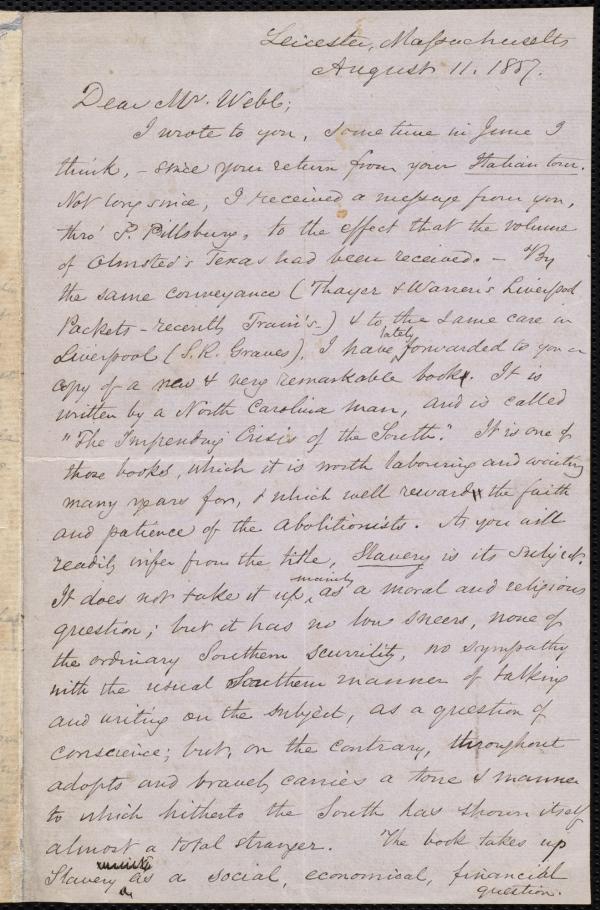 Leicester, Massachusetts
August 11. 1857.
Dear Mr. Webb;
I wrote to you, sometime in June I
think, - since your return from your Italian tour.
Not long since, I received a message from you,
thro' P. Pillsbury, to the effect that the volume
of Olmsted's Texas had been received. - By
the same conveyance (Thayer & Warren's Liverpool
Packets - recently Train's -) & to the same care in
Liverpool (S. R. Graves), I have lately forwarded to you a
copy of a new & very remarkable book. It is
written by a North Carolina man, and is called
"The Impending Crisis of the South." It is one of
those books, which it is worth labouring and waiting
many years for, & which well reward the faith
and patience of the Abolitionists. As you will
readily infer from the title, Slavery is its subject.
It does not take it up, mainly as a moral and religious
question; but it has no low sneers, none of
the ordinary Southern scurrility, no sympathy
with the usual Southern manner of talking
and writing on the subject, as a question of
conscience; but, on the contrary, throughout
adopts and bravely carries a tone & manner
to which hitherto the South has shown itself
almost a total stranger. The book takes up
Slavery as a social, economical, financial
question.